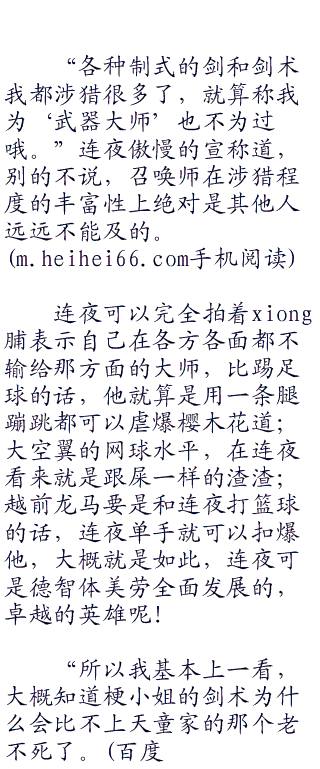 “各种制式的剑和剑术
我都涉猎很多了，就算称我
为‘武器大师’也不为过
哦。”连夜傲慢的宣称道，
别的不说，召唤师在涉猎程
度的丰富性上绝对是其他人
远远不能及的。
(m.heihei66.com手机阅读)
连夜可以完全拍着xiong
脯表示自己在各方各面都不
输给那方面的大师，比踢足
球的话，他就算是用一条腿
蹦跳都可以虐爆樱木花道；
大空翼的网球水平，在连夜
看来就是跟屎一样的渣渣；
越前龙马要是和连夜打篮球
的话，连夜单手就可以扣爆
他，大概就是如此，连夜可
是德智体美劳全面发展的，
卓越的英雄呢！
“所以我基本上一看，
大概知道梗小姐的剑术为什
么会比不上天童家的那个老
不死了。(百度